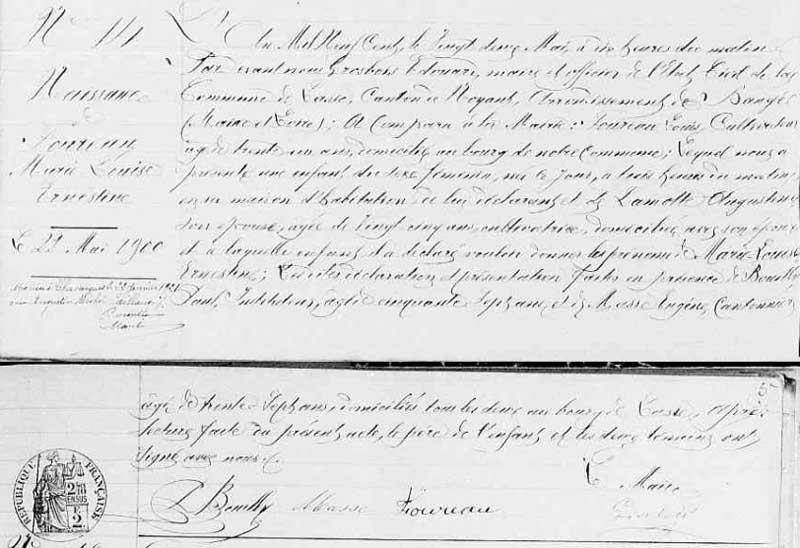 N° 14
Naissance
de
Foureau
Marie Louise
Ernestine
Le 22 Mai 1900
L'An Mil Neuf Cent, le Vingt deux Mai à dix heures du matin
Par devant nous Édouard, maire et officier de l'État Civil de la
Commune de Lasse, Canton de Noyant, Arrondissement de Baugé
(Maine et Loire); A Comparu à la Mairie: Foureau Louis, Cultivateur
âgé de trente un ans, domicilié au bourg de notre Commune; Lequel nous a
présenté une enfant du sexe féminin, née le jour, à trois heures du matin
en sa maison d'habitation de lui déclarant et de Lamotte Augustine
son épouse, âgée de Vingt cinq ans, cultivatrice, domiciliée avec son époux
et à laquelle enfant il a déclaré vouloir donner les prénoms de Marie Louise
Ernestine; Les dites déclaration et présentation faites en présence de Bouilly
Paul, Instituteur, âgé de cinquante sept ans, et de Masse Eugène, Cantonnier
âgé de trente sept ans, domiciliés tous les deux au bourg de Lasse, Après
lecture faite du présent acte, le père de l'enfant et les deux témoins ont
signé avec nous.
Le Maire
Bouilly Masse Foureau
RÉPUBLIQUE FRANÇAISE